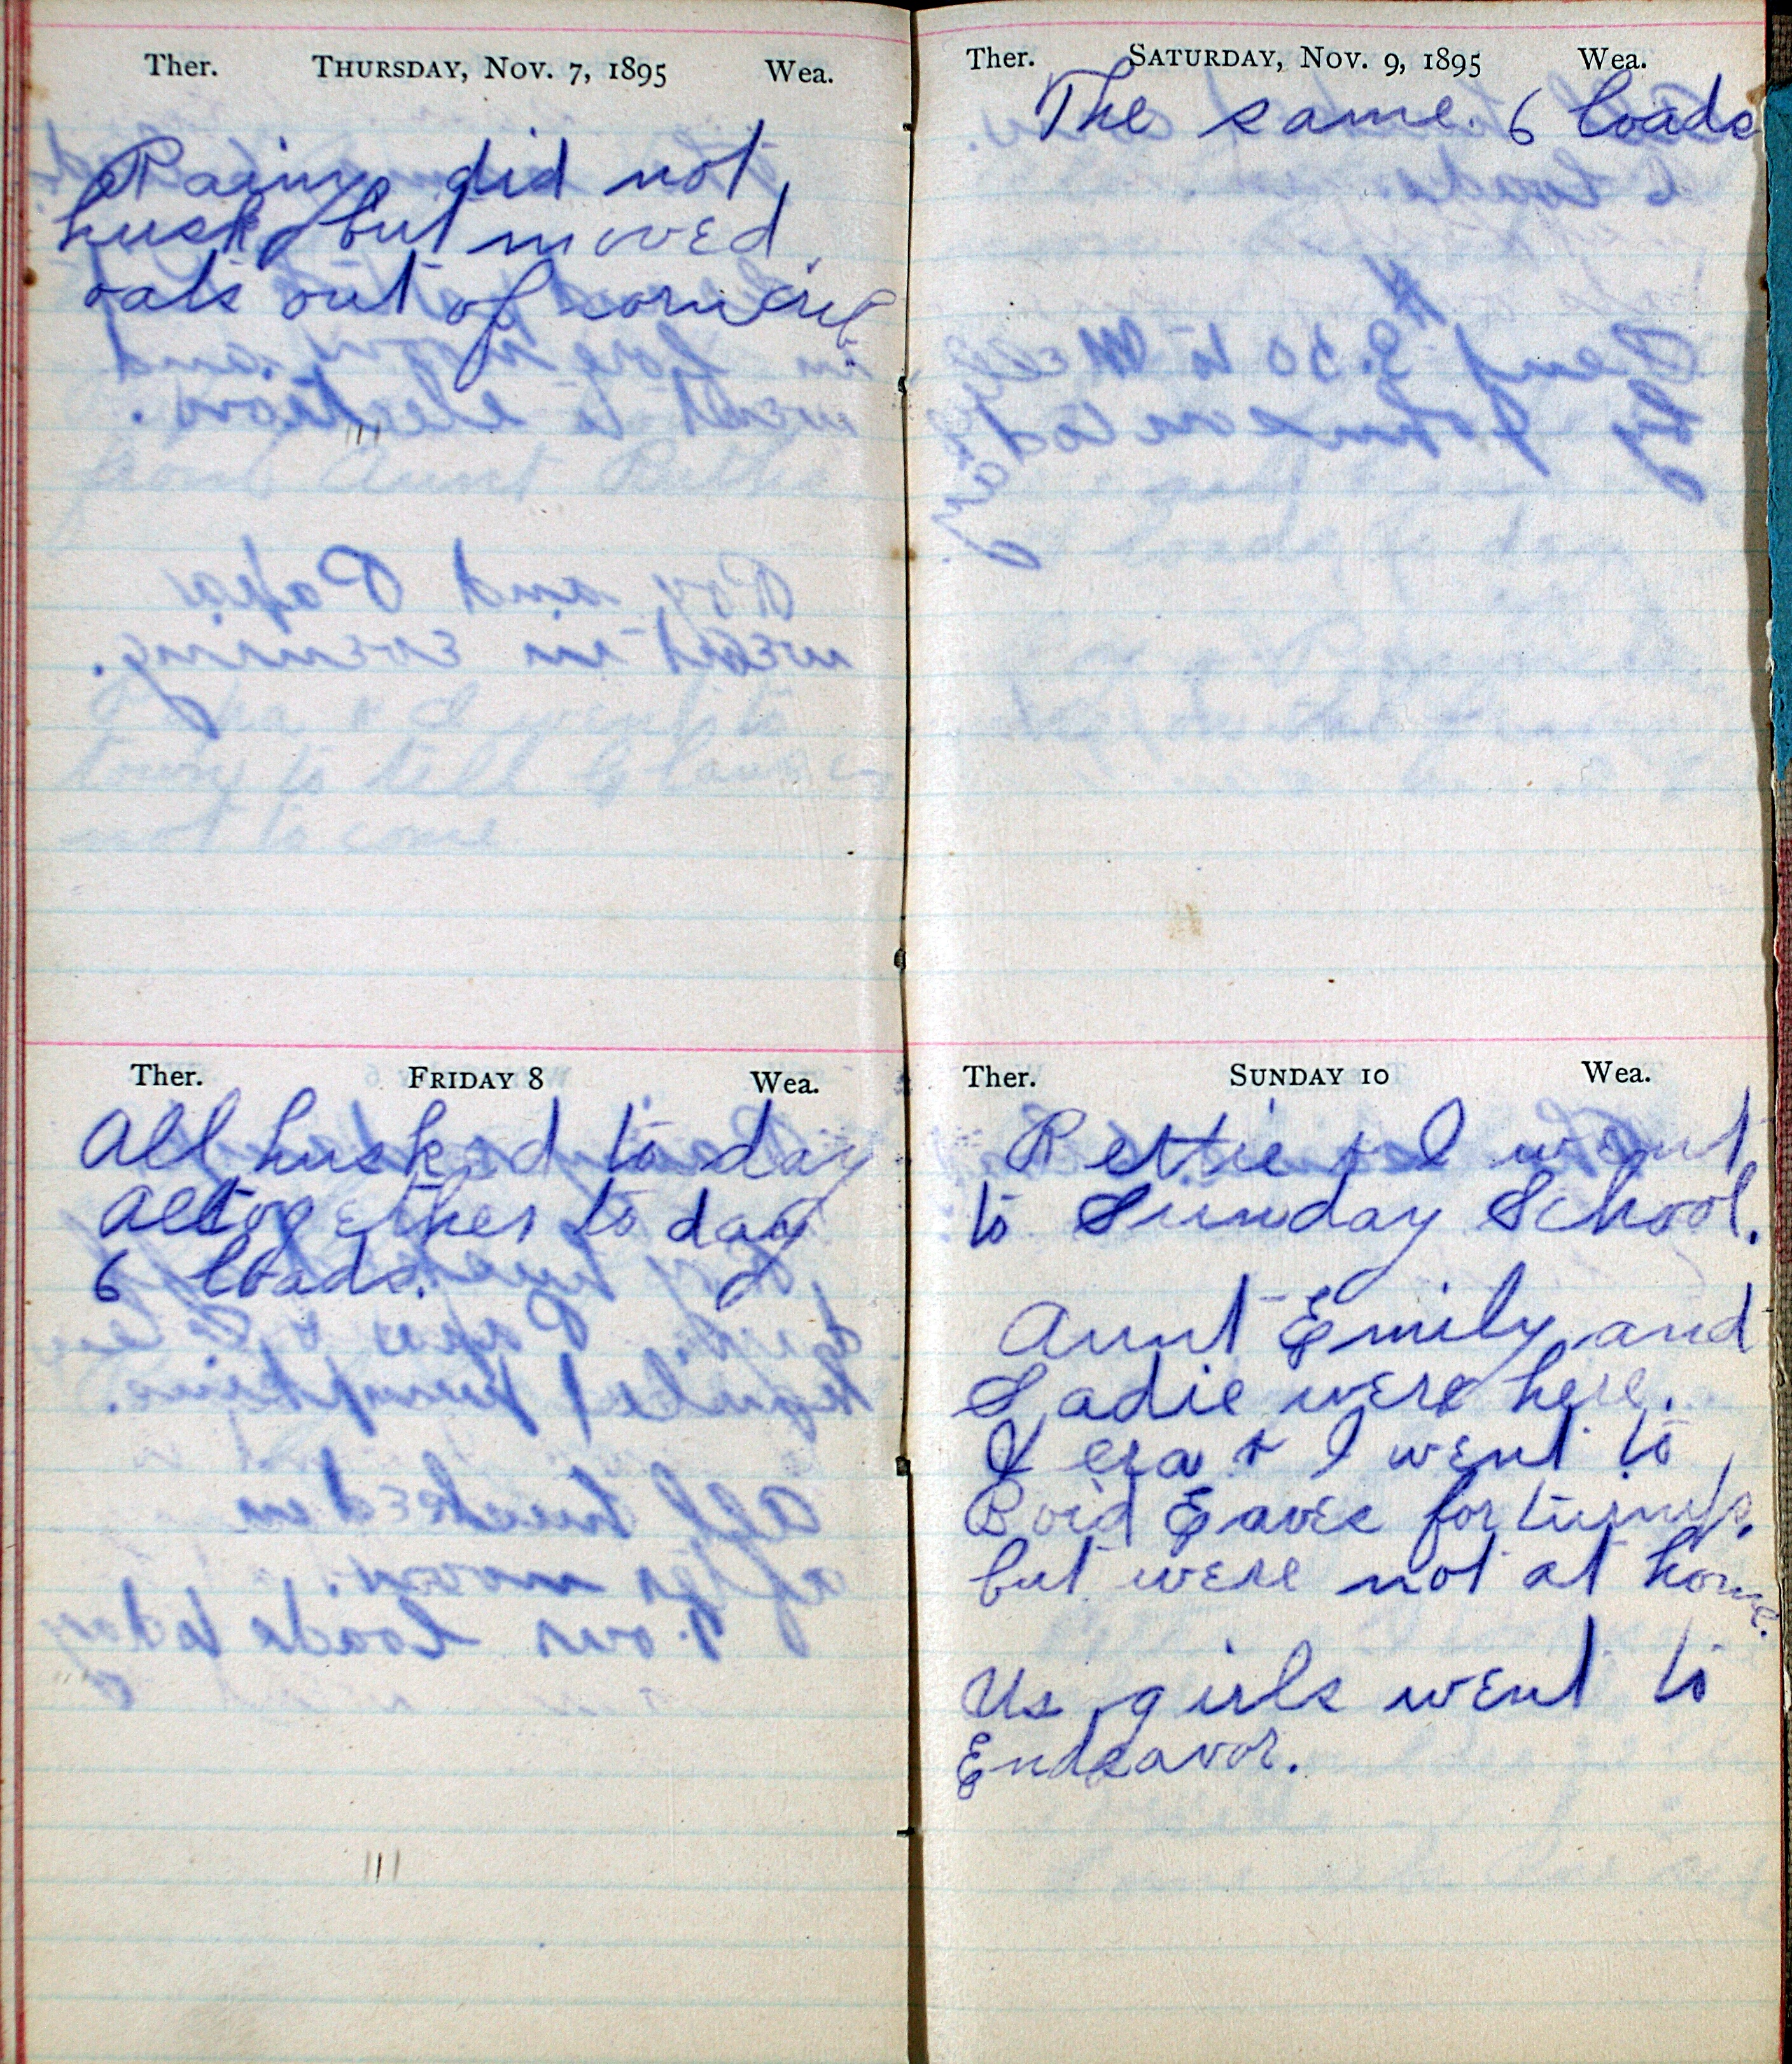 Ther. Thursday, Nov. 7, 1895 Wea.
Rainy did not
husk, but moved
oats out of corn crib.
Ther. Friday 8 Wea.
All husked to day
Altogether to day
6 loads.
Ther. Saturday, Nov. 9, 1895 Wea.
The same. 6 loads
Ther. Sunday 10 Wea.
Bettie & I went
to Sunday School.
Aunt Emily and
Sadie were here.
& I went to
Boid Eaves for turnips,
but were not at home.
Us girls went to
Endeavor.